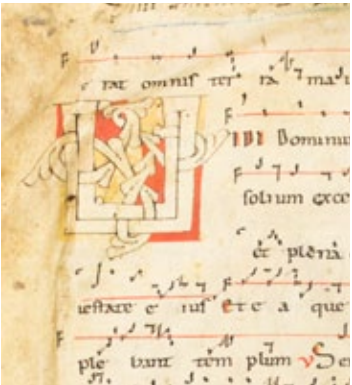 e rat omnis ter ra ma
IDI Dominu
solium exce
et plena
iestate e ius Et e a que
ple bant tem plum V Se